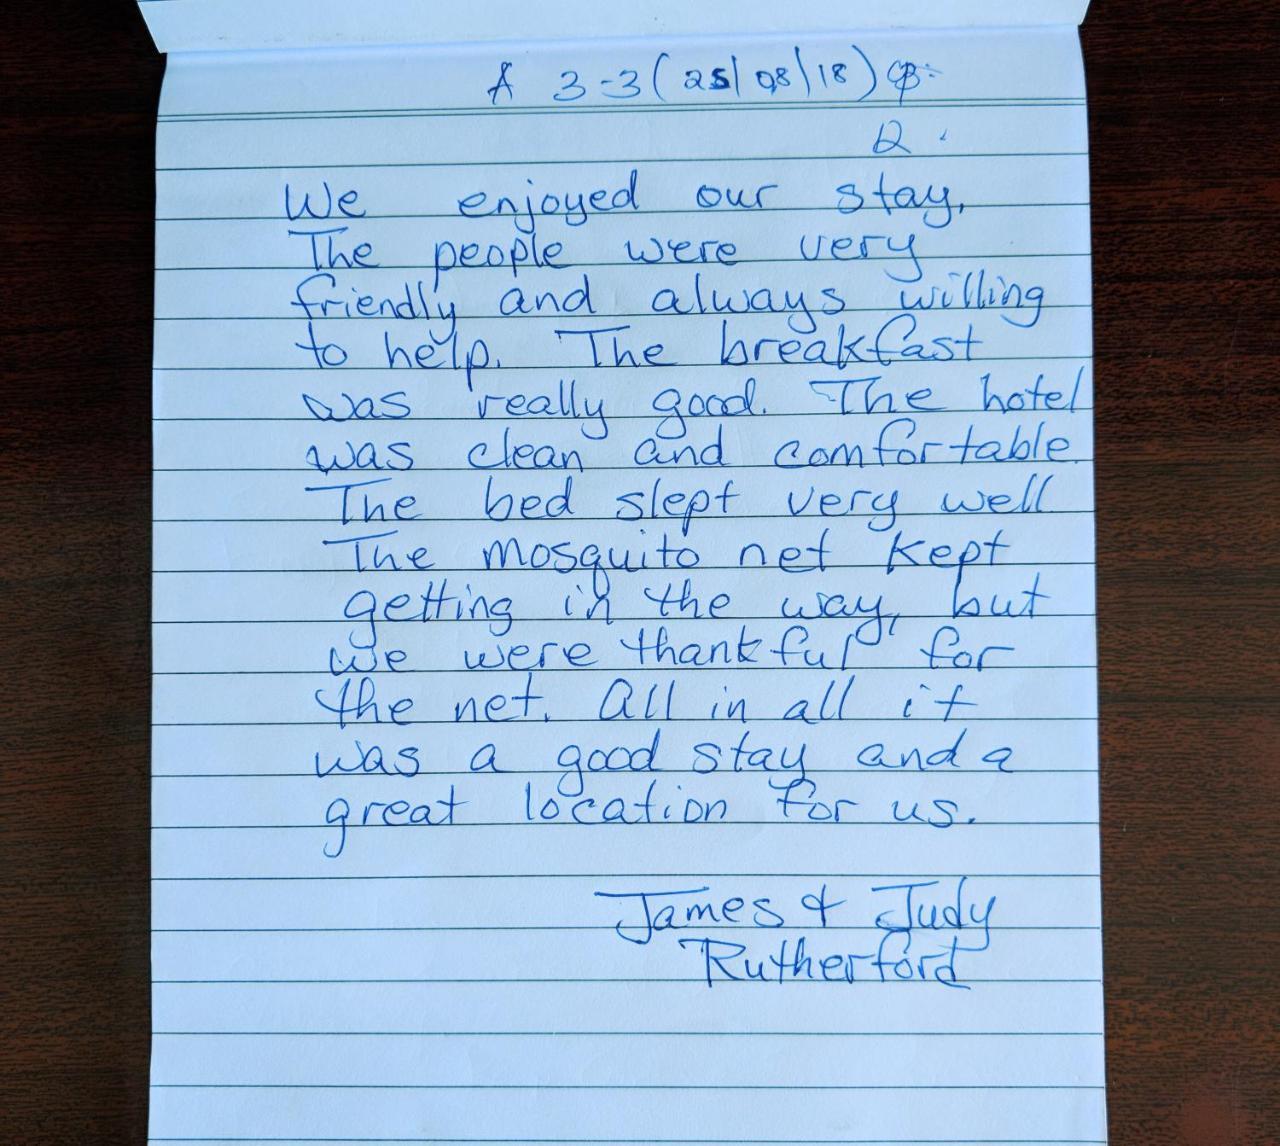 A 3-3 (25/08/18)
We enjoyed our stay.
The people were very
friendly and always willing
to help. The breakfast
was really good. The hotel
was clean and comfortable.
The bed slept very well
The mosquito net kept
getting in the way, but
we were thankful for
the net. All in all it
was a good stay and a
great location for us.
James & Judy
Rutherford